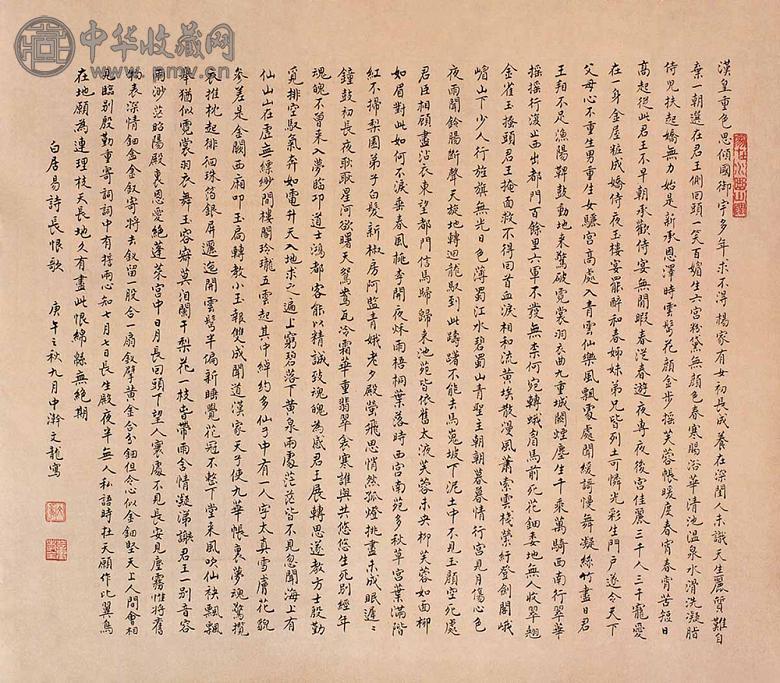 漢皇重色思傾國御宇多年求不得楊家有女初長成養在深閨人未識天生麗質難自
棄一朝選在君王側回頭一笑百媚生六宮粉黛無顏色春寒賜浴華清池溫泉水滑洗凝脂
侍兒扶起嬌無力始是新承恩澤時雲鬢花顏金步搖芙蓉帳暖度春宵春宵苦短日
高起從此君王不早朝承歡侍宴無閒暇春從春遊夜專夜後宮佳麗三千人三千寵愛
在一身金屋粧成嬌侍夜玉樓宴罷醉和春姊妹弟兄皆列土可憐光彩生門戶遂令天下
父母心不重生男重生女驪宮高處入青雲仙樂風飄處處聞緩謌慢舞凝絲竹盡日君
王看不足漁陽鞞鼓動地來驚破霓裳羽衣曲九重城闕煙塵生千乘萬騎西南行翠華
搖搖行復止西出都門百餘里六軍不發無奈何宛轉蛾眉馬前死花鈿委地無人收翠翹
金雀玉搔頭君王掩面救不得回首血淚相和流黃埃散漫風蕭索雲棧縈紆登劍閣峨
嵋山下少人行旌旗無光日色薄蜀江水碧蜀山青聖主朝朝暮暮情行宮見月傷心色
夜雨聞鈴腸斷聲天旋地轉迴龍馭到此躊躇不能去馬嵬坡下泥土中不見玉顏空死處
君臣相顧盡沾衣東望都門信馬歸歸來池苑皆依舊太液芙蓉未央柳芙蓉如面柳
如眉對此如何不淚垂春風桃李開夜秋雨梧桐葉落時西宮南苑多秋草宮葉滿階
紅不掃梨園弟子白髮新椒房阿監青娥老夕殿螢飛思悄然孤燈挑盡未成眠遲遲
鐘鼓初長夜耿耿星河欲曙天鴛鴦瓦冷霜華重翡翠衾寒誰與共悠悠生死別經年
魂魄不曾來入夢臨邛道士鴻都客能以精誠致魂魄為感君王展轉思遂教方士殷勤
覓排空馭氣奔如電升天入地求之遍上窮碧落下黃泉兩處茫茫皆不見忽聞海上有
仙山山在虛無縹緲間樓閣玲瓏五雲起其中綽約多仙子中有一人字太真雪膚花貌
參差是金闕西廂叩玉扃轉教小玉報雙成聞道漢家天子使九華帳裏夢魂驚攬
衣推枕起徘徊珠箔銀屏邐迤開雲鬢半偏新睡覺花冠不整下堂來風吹仙袂飄飄
舉猶似霓裳羽衣舞玉容寂寞淚闌干梨花一枝春帶雨含情凝睇謝君王一別音容
兩渺茫昭陽殿裏恩愛絕蓬萊宮中日月長回頭下望人寰處不見長安見塵霧惟將舊
物表深情鈿合金釵寄將去釵留一股合一扇釵擘黃金合分鈿但令心似金鈿堅天上人間會相
見臨別殷勤重寄詞詞中有誓兩心知七月七日長生殿夜半無人私語時在天願作比翼鳥
在地願為連理枝天長地久有盡此恨綿綿無絕期
白居易詩長恨歌 庚午之秋九月中澣文龍寫
中华收藏网
www.nmv.cn